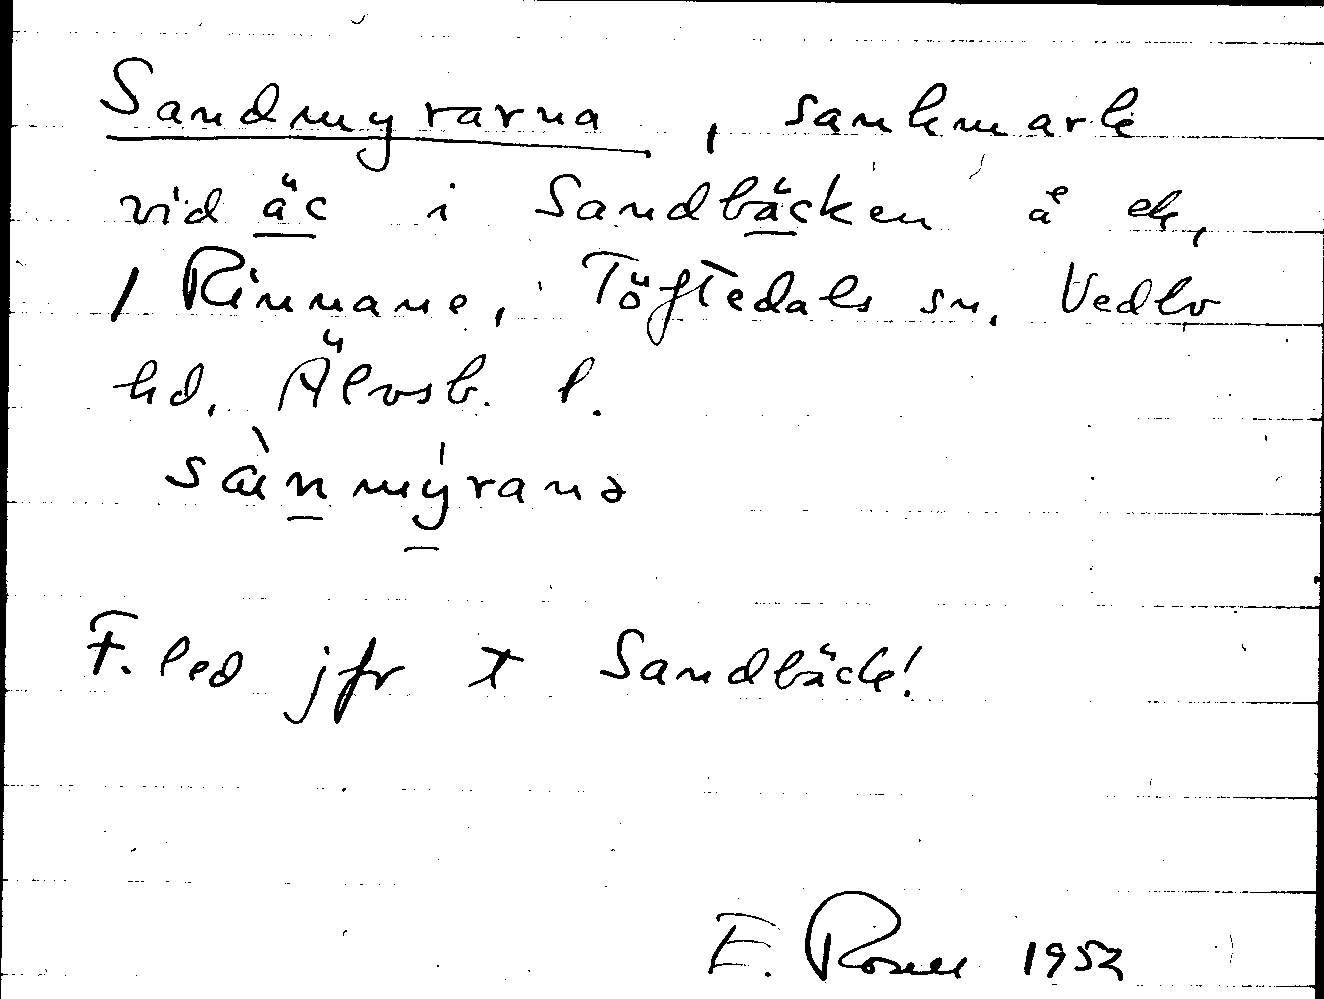 Sandmyrarna, sankmark
vid äc i Sandbäcken å ek,
/ Rinnane, Töftedals sn, Vedbo
hd, Älvsb. l.
sànmýranə
F. led jfr t Sandbäck!
E. Rosell 1952